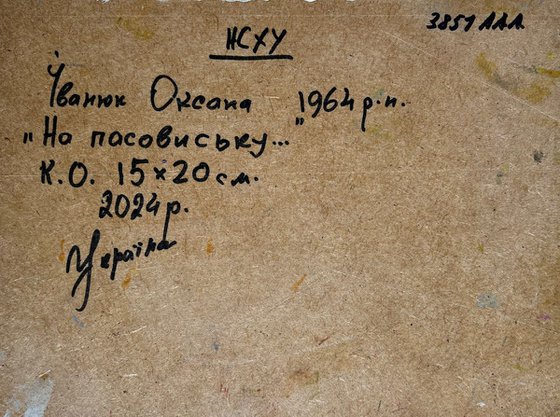 3851 ААА
НСХУ
Іванюк Оксана 1964 р.н.
„На пасовиську..."
К.О. 15×20 см.
2024р.
Україна